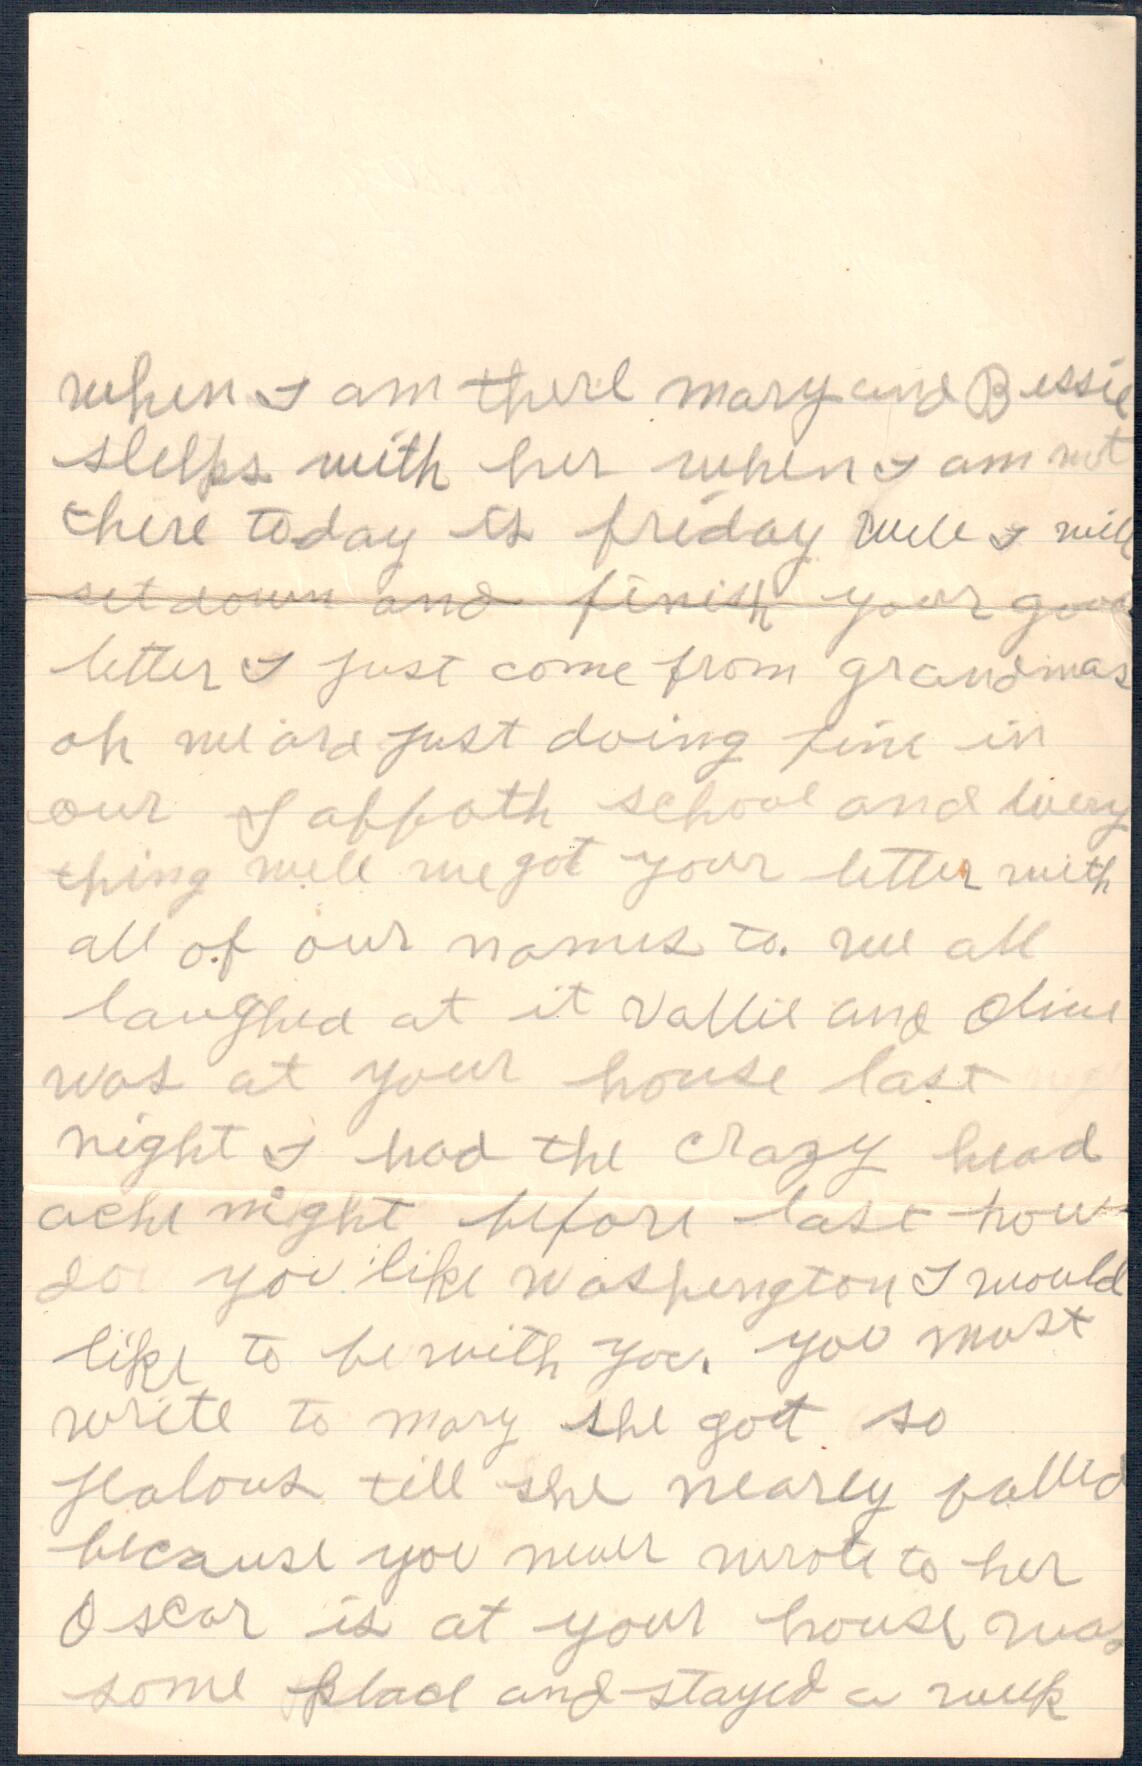 when I am there mary and Bessie
sleeps with her when I am not
there today is friday well I will
set down and finish your good
letter I just come from grandmas
oh we are just doing fine in
our Sabbath school and every
thing well we got your letter with
all of our names to. we all
laughed at it Vallie and Olive
was at your house last
night I had the crazy head
ache night before last how
do you like Washengton I would
like to be with you. you must
write to mary she gott so
jealous till she nearly
because you never wrote to her
Oscar is at your house was
some place and stayed a week